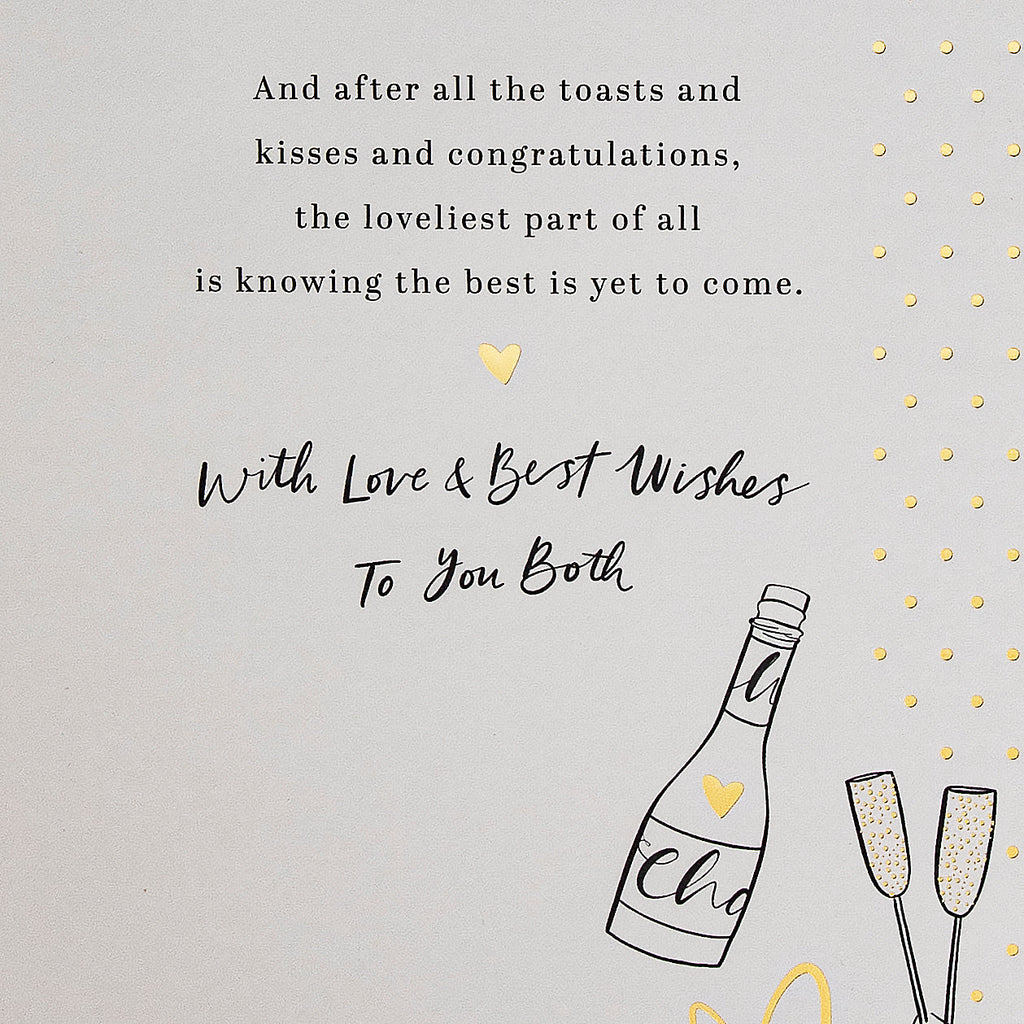 And after all the toasts and
kisses and congratulations,
the loveliest part of all
is knowing the best is yet to come.
With Love & Best Wishes
To You Both
Cha